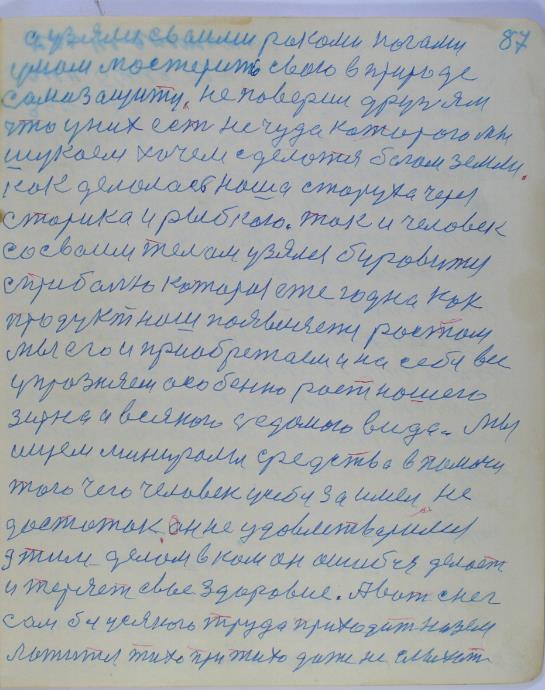 а узялися своими руками ногами 87
умом мостерить свою в природе
самозащиту. не поверил друзям
что у них ест не чуда которого мы
шукаем хочем сделатся богом земли.
как делолась ноша старуха через
старика и рыбкою. так и человек
со своим телом узялся буровити
с прибалю которая ежегодна как
продукт нош появляети ростом
мы его и приобретаем и на себя все
упрозняем особенно рост ношего
зирна и всякого едомого вида. Мы
ищем минуромы средства в помочи
того чего человек учебя заимел не
достоток. он не удовлетварился
этим делом в ком он ошибся делает
и теряет свое здоровие. А вот снег
сам без усякого труда приходит на зем
лютител тихо при тихо даже не слихот